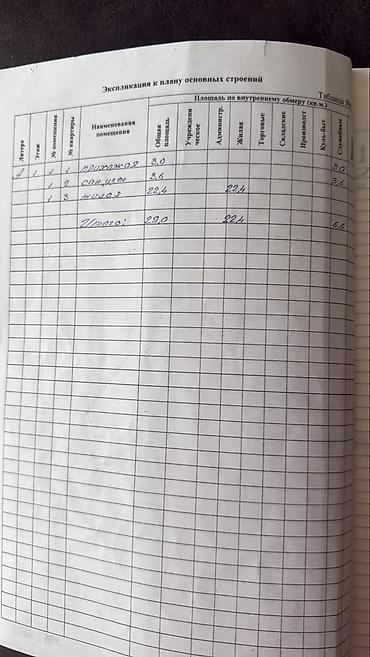 Экспликация к плану основных строений
Таблица №
Литера Этаж № помещения № квартиры Наименования помещения Площадь по внутреннему обмеру (кв.м.)
Общая площадь Учрежденческое Администр. Жилая Торговые Складские Производст Культ-быт Служебные
1 1 1 прихожая 3,0 3,0
1 2 сан,узел 3,6 3,6
1 3 жилая 22,4 22,4
Итого: 29,0 22,4 6,6